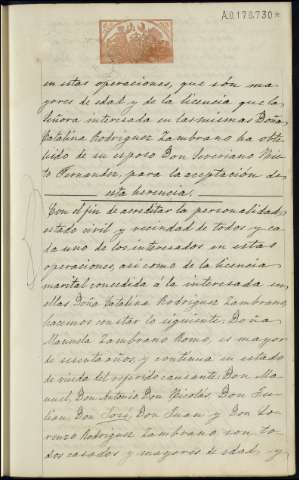 A.0.178.730*
en estas operaciones, que són ma-
yores de edad y de la licencia que la
Señora interesada en las mismas Doña
Catalina Rodriguez Zambrano ha obte-
nido de su esposo Don Severiano Nie-
to Fernandez, para la aceptación de
esta herencia.
Con el fin de acreditar la personalidad,
estado civil y vecindad de todos y ca-
da uno de los interesados en estas
operaciones, asi como de la licencia
marital concedida á la interesada en
ellas Doña Catalina Rodriguez Zambrano,
hacemos constar lo siguiente: Doña
Manuela Zambrano Romo, es mayor
de sesenta años, y continua en estado
de viuda del referido causante: Don Ma-
nuel, Don Antonio, Don Nicolás, Don Ju-
lian, Don José, Don Juan y Don Lo-
renzo Rodriguez Zambrano son to-
dos casados y mayores de edad, y